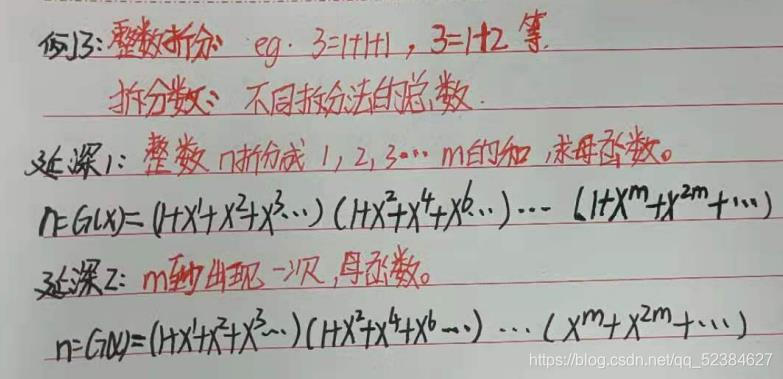 例3:整数拆分: eg. 3=1+1+1, 3=1+2 等.
拆分数: 不同拆分法的总数.
延深1: 整数n拆分成 1, 2, 3… m的和,求母函数。
n=G(x)=(1+x¹+x²+x³…) (1+x²+x⁴+x⁶…) … (1+x^m+x^2m+…)
延深2: m至少出现一次,母函数。
n=G(x)=(1+x¹+x²+x³…) (1+x²+x⁴+x⁶…) … (x^m+x^2m+…)
https://blog.csdn.net/qq_52384627